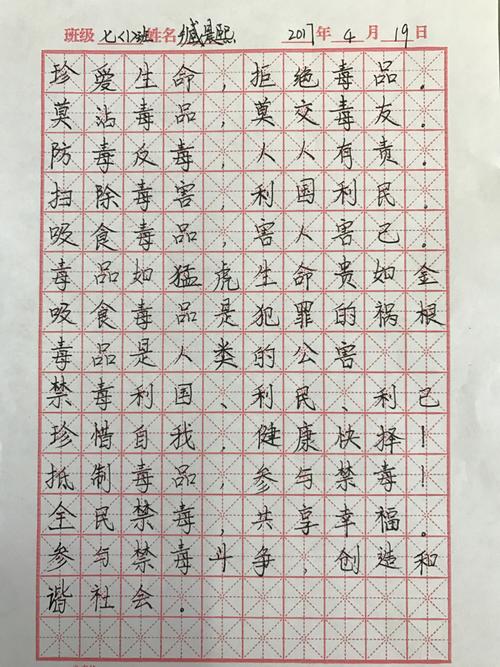 班级 七(1)班 姓名 臧晨熙 2017年 4月 19日
珍爱生命,拒绝毒品.
莫沾毒品,莫交毒友.
防毒反毒,人人有责.
扫除毒害,利国利民.
吸食毒品,害人害己.
毒品如猛虎生命贵如金
吸食毒品是犯罪的祸根
毒品是人类的公害
禁毒利国、利民、利己
珍惜自我,健康快择!
抵制毒品,参与禁毒!
全民禁毒,共享幸福。
参与禁毒斗争,创造和
谐社会.